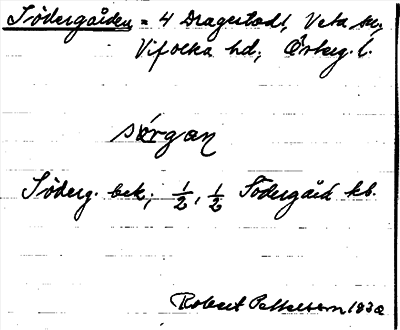 Södergården = 4 Dragestad, Veta sn,
Vifolka hd, Östeg. l.
sørgan
Söderg. bek, 1/2, 1/2 Södergård kb.
Robert Pettersson 1932